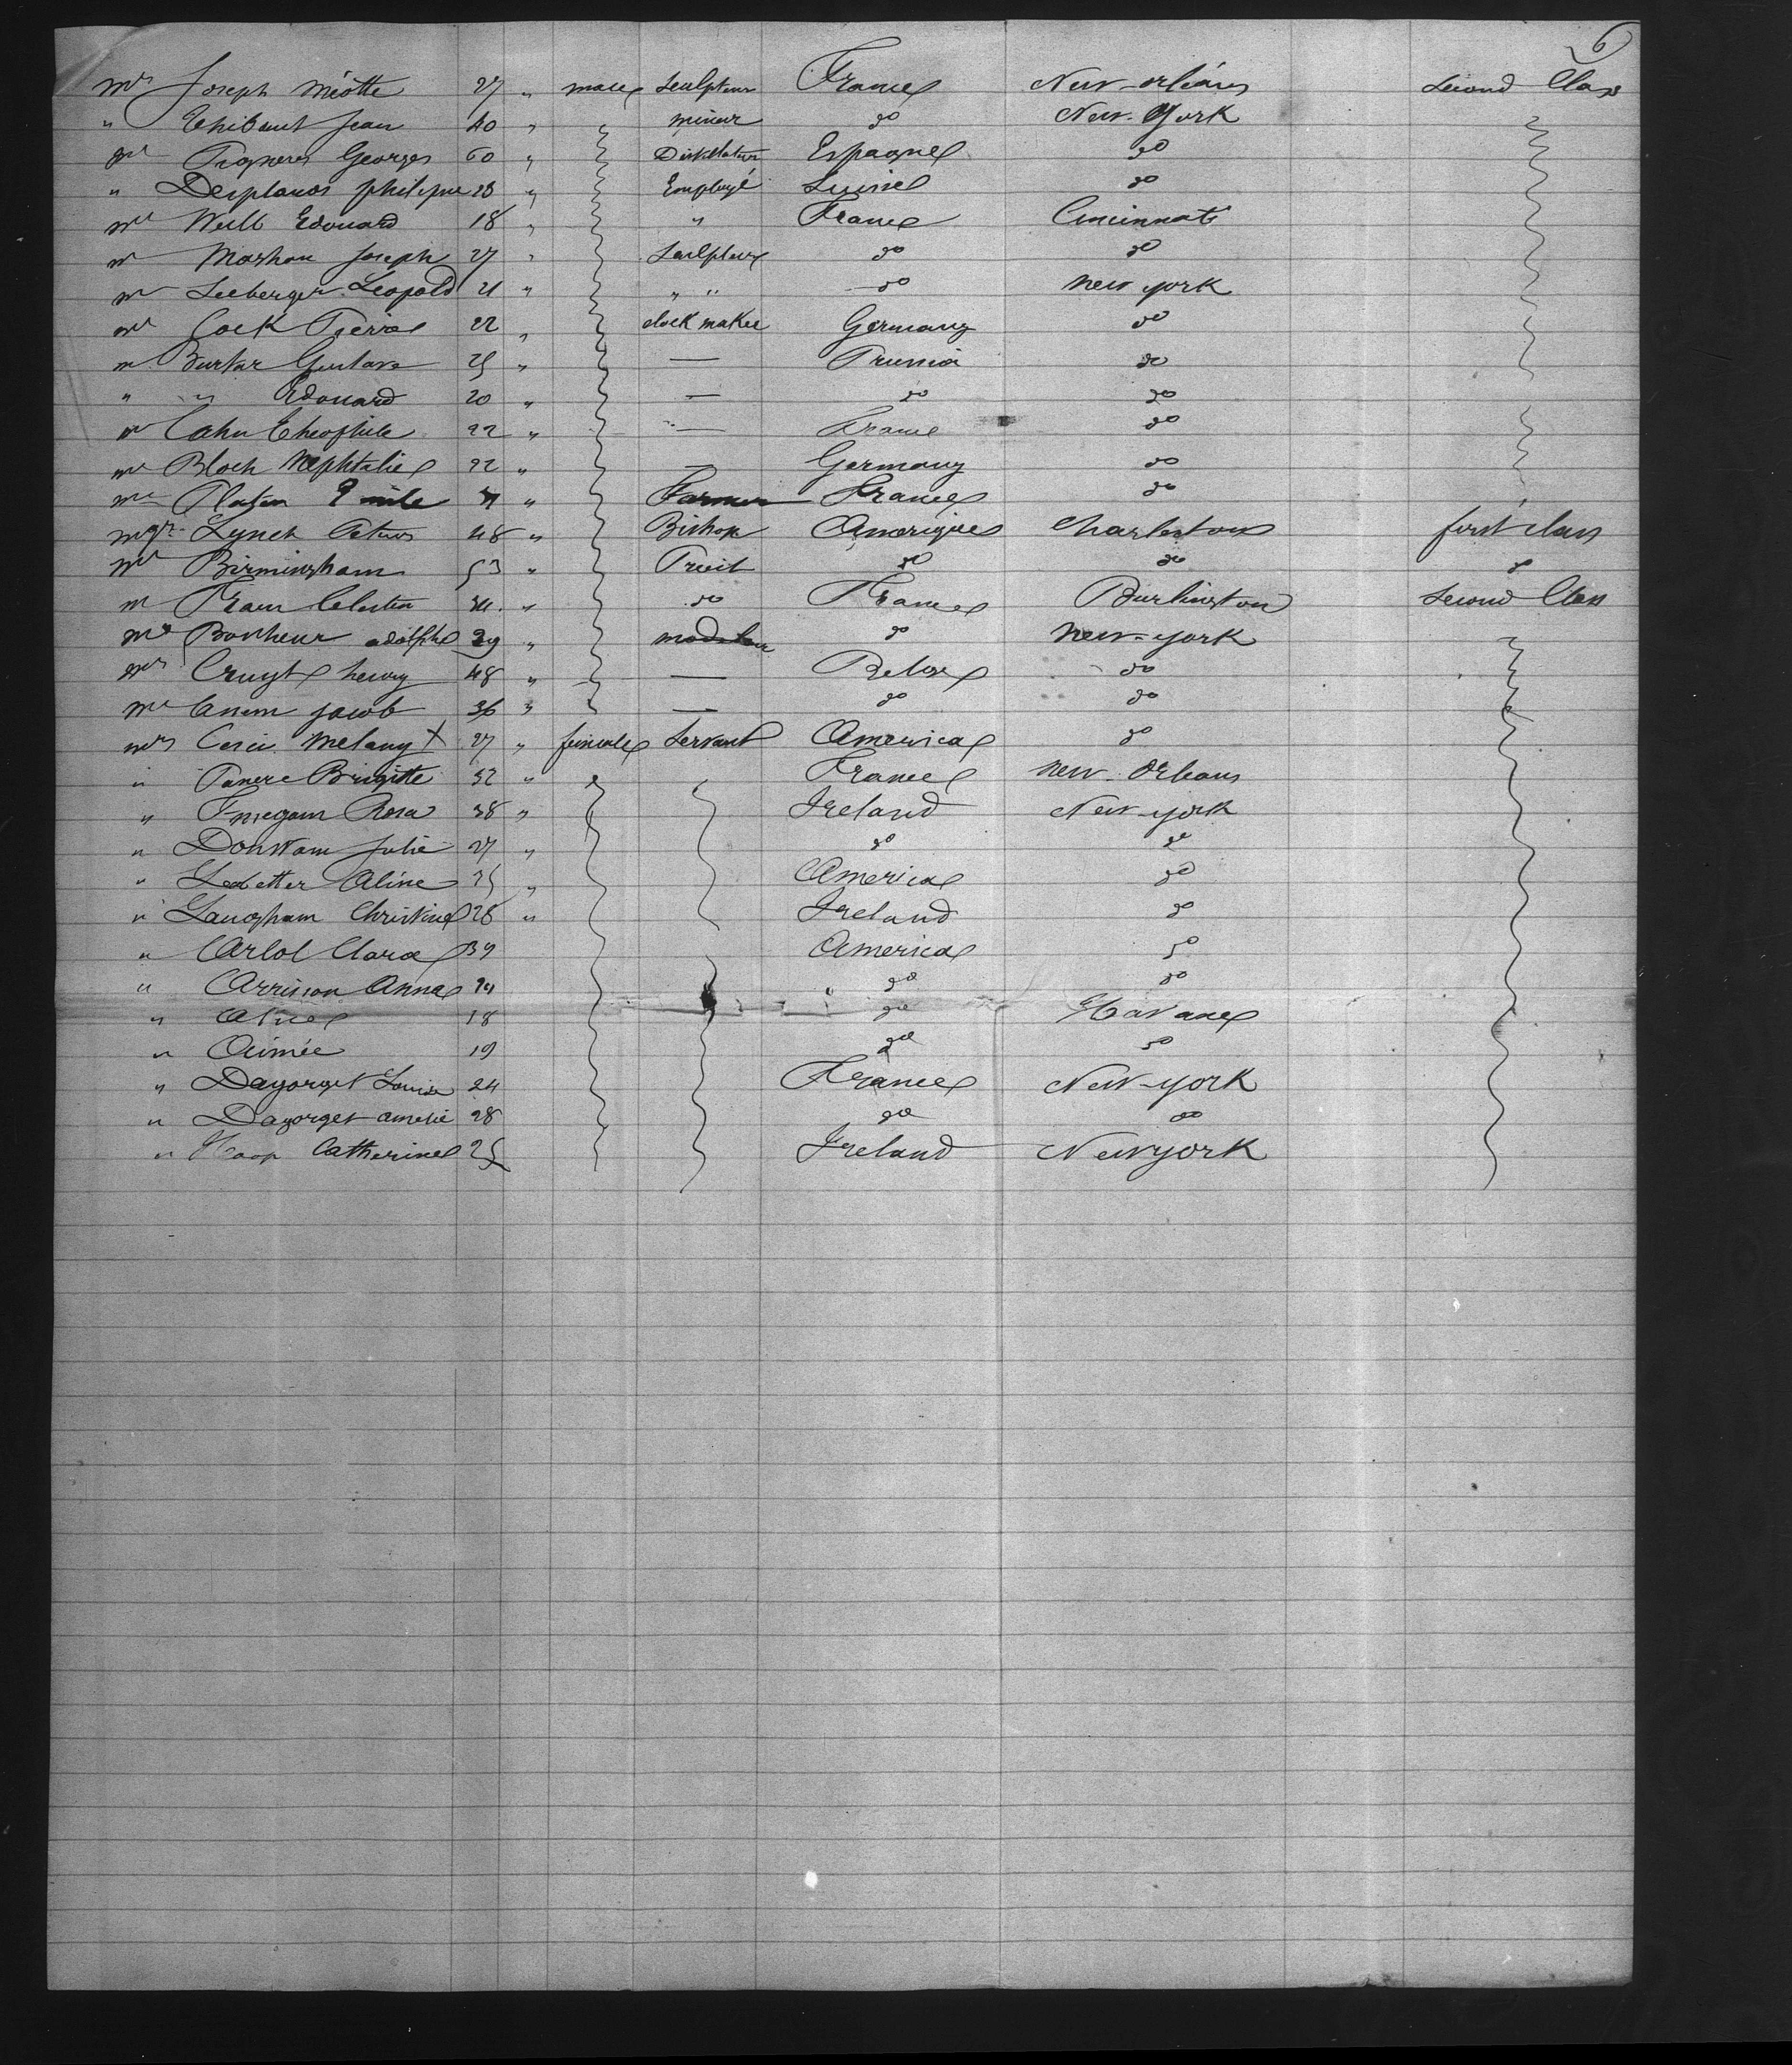 6
Mr Joseph Miotte 27 " male Sculpteur France New-Orléans Second Class
" Thibaut Jean 40 " mineur do New-York
Mr Georges 60 " Distillateur Espagne do
" Desplanos philippe 28 " Employé Suisse do
Mr Weill Edouard 18 " " France Cincinnati
Mr Joseph 27 " Sculpteur do do
Mr Seeberger Leopold 21 " " " do new york
Mr Cock Pierre 22 " clock maker Germany do
Mr Gustave 25 " — Prussia do
" " Edouard 20 " — do do
Mr Cahn Theophile 22 " — France do
Mr Bloch Nephtalie 22 " — Germany do
Mr Emile " Farmer France do
Mgr Lynch 48 " Bishop Amerique Charleston first class
Mr Birmingham 53 " Preist do do do
Mr Celestin " do France Burlington Second Class
Mr Bonheur adolphe 29 " modeleur do new-york
Mr Cruyt henry 48 " — Belge do
Mr jacob 36 " — do do
Mrs Melany X 27 " female Servant America do
" Brigitte 32 " France new-Orleans
" Rosa 38 " Ireland New-york
" Julie 27 " do do
" Ledbetter Aline 25 " America do
" Langham Christine 26 " Ireland do
" Carlol Clara 39 America do
" Arrison Anna do do
" Alice 18 do Havane
" Aimée 19 do do
" Dayorget Louise 24 France New-york
" Dayorget amelie 28 do do
" Catherine 25 Ireland Newyork